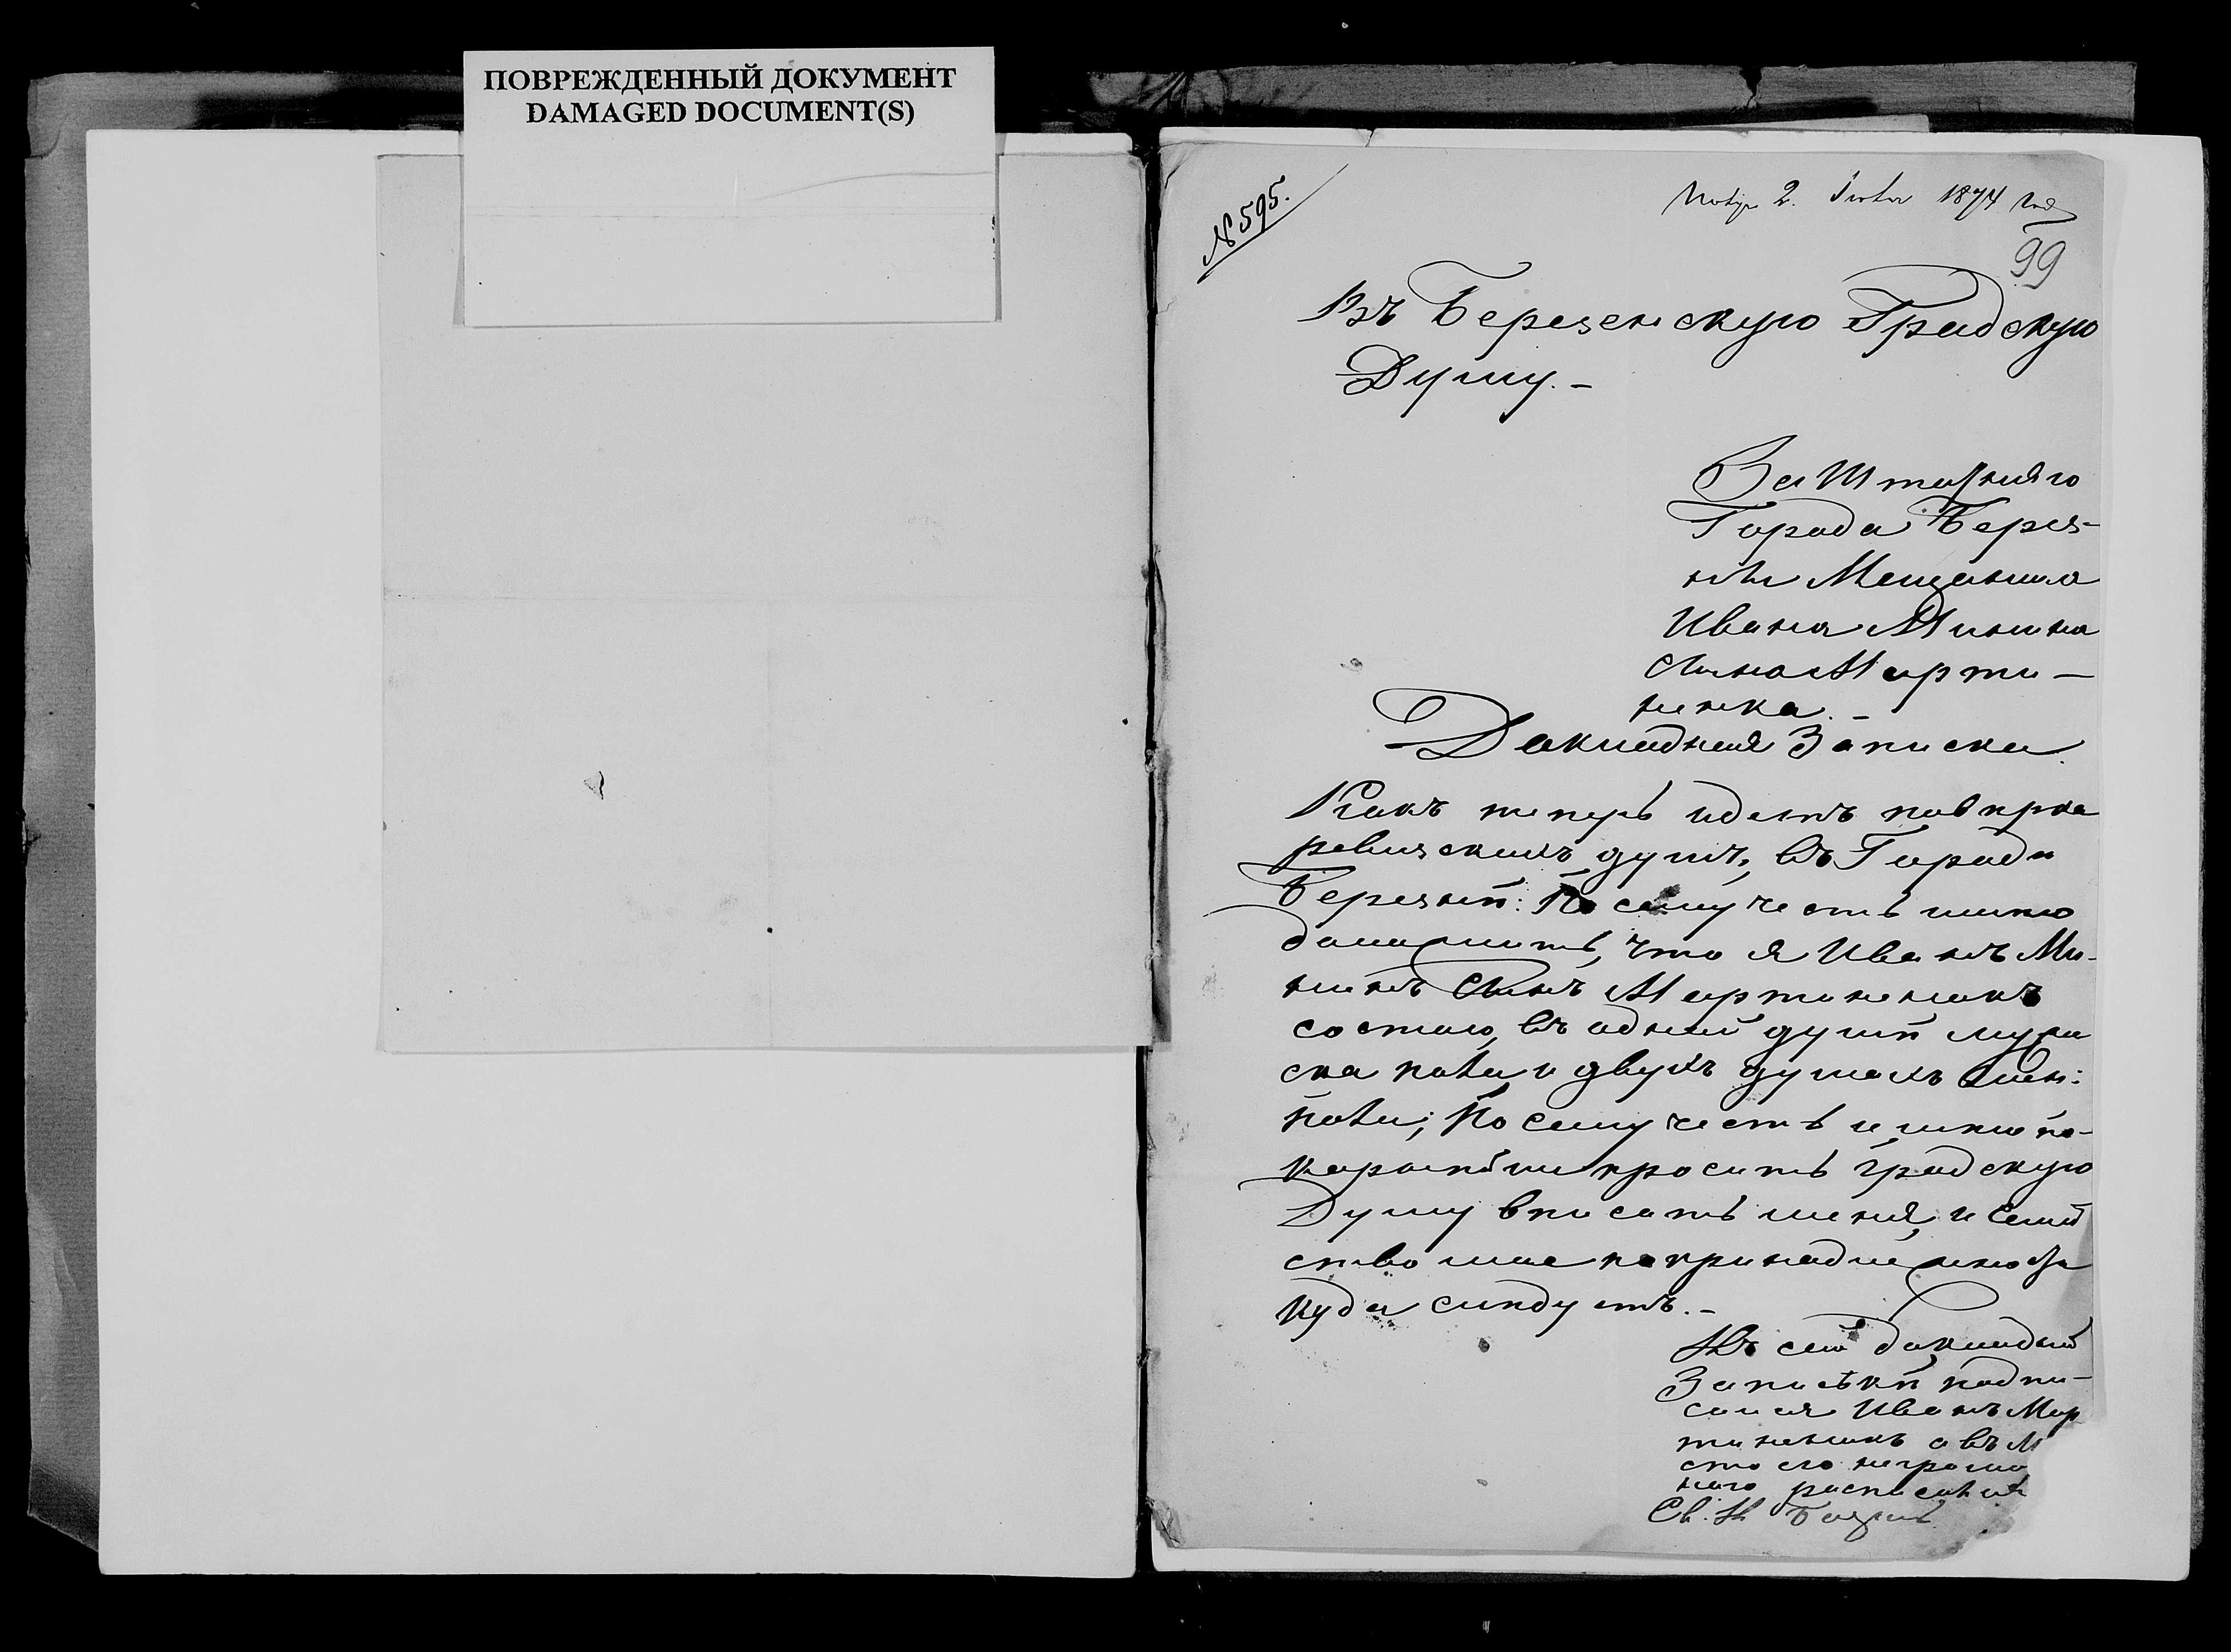 ПОВРЕЖДЕННЫЙ ДОКУМЕНТ
DAMAGED DOCUMENT(S)
№ 595.
2. 1874
99
Въ Березенскую Градскую
Думу. –
Заштатнаго
Города Берез-
ны Мещанина
Ивана Минина
сына Марти-
ненка. –
Докладная Записка.
Какъ теперь идетъ повѣрка
ревизскихъ душъ, въ Городѣ
Березнѣ: По сему честь имѣю
доложить, что я Иванъ Ми-
нинъ сынъ Мартиненкъ
состою въ одной душѣ муже
ска пола и двухъ душахъ жен:
пола; По сему честь имѣю по-
корнѣйше просить Градскую
Думу вписать меня, и семей
ство мое по принадлежности
куда слѣдуетъ. –
Къ сей докладной
Запискѣ подпи-
сался Иванъ Мар
тиненкъ а въ м
сто его неграмо
наго росписался